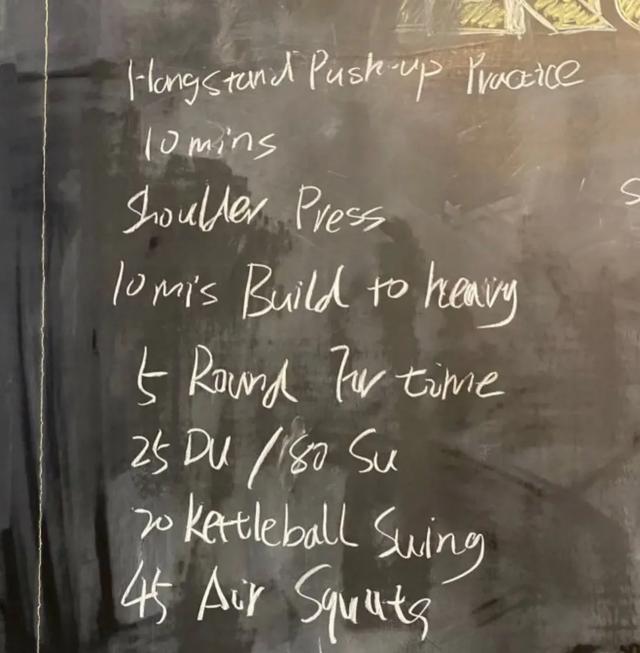 Hangstand Push-up Practice
10 mins
Shoulder Press
10 mis Build to heavy
5 Round For time
25 DU / 80 Su
20 Kettleball Swing
45 Air Squats